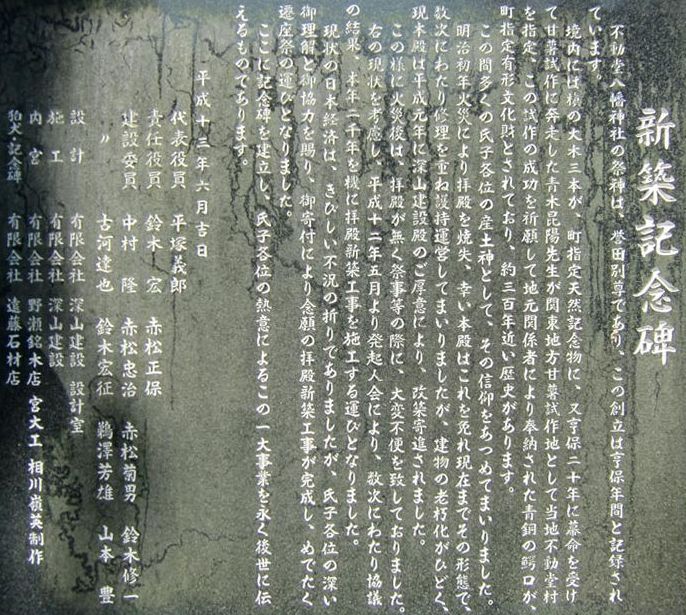 新築記念碑
不動堂八幡神社の祭神は、誉田別尊であり、この創立は享保年間と記録され
ています。
境内には槙の大木三本が、町指定天然記念物に、又享保二十年に幕命を受け
て甘薯試作に奔走した青木昆陽先生が関東地方甘薯試作地として当地不動堂村
を指定、この試作の成功を祈願して地元関係者により奉納された青銅の鰐口が
町指定有形文化財とされており、約三百年近い歴史があります。
この間多くの氏子各位の産土神として、その信仰をあつめてまいりました。
明治初年火災により拝殿を焼失、幸い本殿はこれを免れ現在までその形態で、
数次にわたり修理を重ね護持運営してまいりましたが、建物の老朽化がひどく、
現本殿は平成元年に深山建設殿のご厚意により、改築寄進されました。
この様に火災後は、拝殿が無く祭事等の際に、大変不便を致しておりました。
右の現状を考慮し、平成十二年五月より発起人会により、数次にわたり協議
の結果、本年二千年を機に拝殿新築工事を施工する運びとなりました。
現状の日本経済は、きびしい不況の折りでありましたが、氏子各位の深い
御理解と御協力を賜り、御寄付により念願の拝殿新築工事が完成し、めでたく
遷座祭の運びとなりました。
ここに記念碑を建立し、氏子各位の熱意によるこの一大事業を永く後世に伝
えるものであります。
平成十三年六月吉日
代表役員 平塚義郎
責任役員 鈴木 宏 赤松正保
建設委員 中村 隆 赤松忠治 赤松菊男 鈴木修一
〃 古河達也 鈴木宏征 鵜澤芳雄 山本 豊
設計 有限会社 深山建設 設計室
施工 有限会社 深山建設
内宮 有限会社 野瀬銘木店 宮大工 相川嶺英制作
狛犬・記念碑 有限会社 遠藤石材店